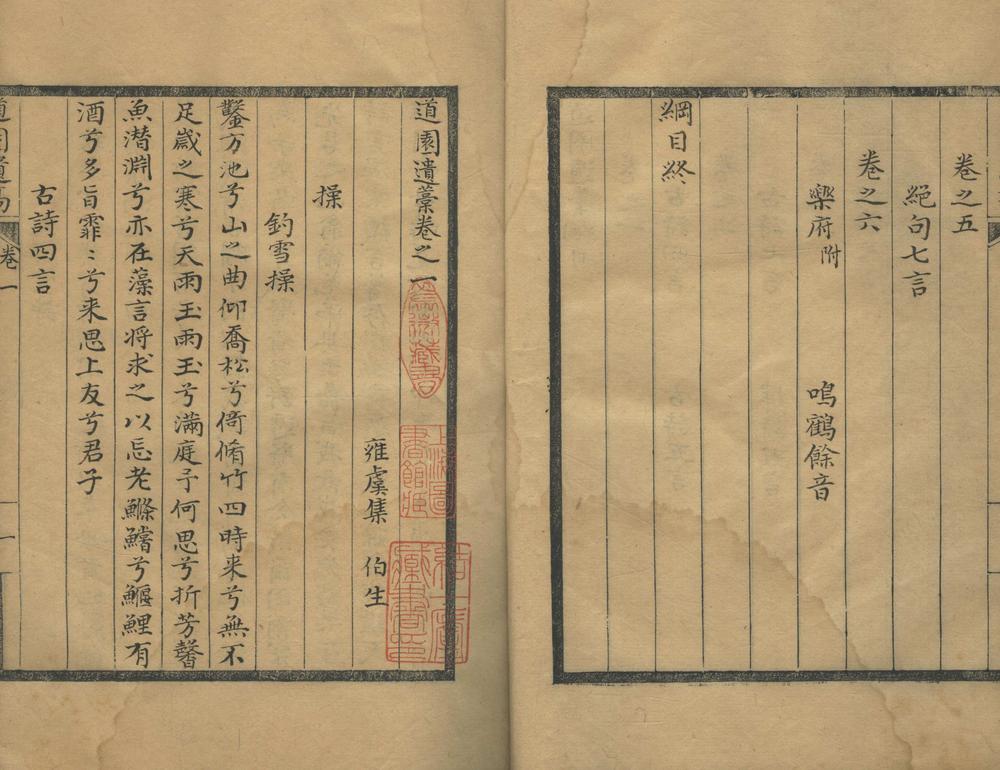 卷之五
絕句七言
卷之六
樂府附 鳴鶴餘音
綱目終
道園遺藁卷之一
雍虞集 伯生
操
釣雪操
鑿方池兮山之曲仰喬松兮倚脩竹四時来兮無不
足歲之寒兮天雨玉雨玉兮滿庭予何思兮折芳馨
魚潛淵兮亦在藻言將求之以忘老鰷鱨兮鰋鯉有
酒兮多旨霏〻兮来思上友兮君子
古詩四言
卷一
一